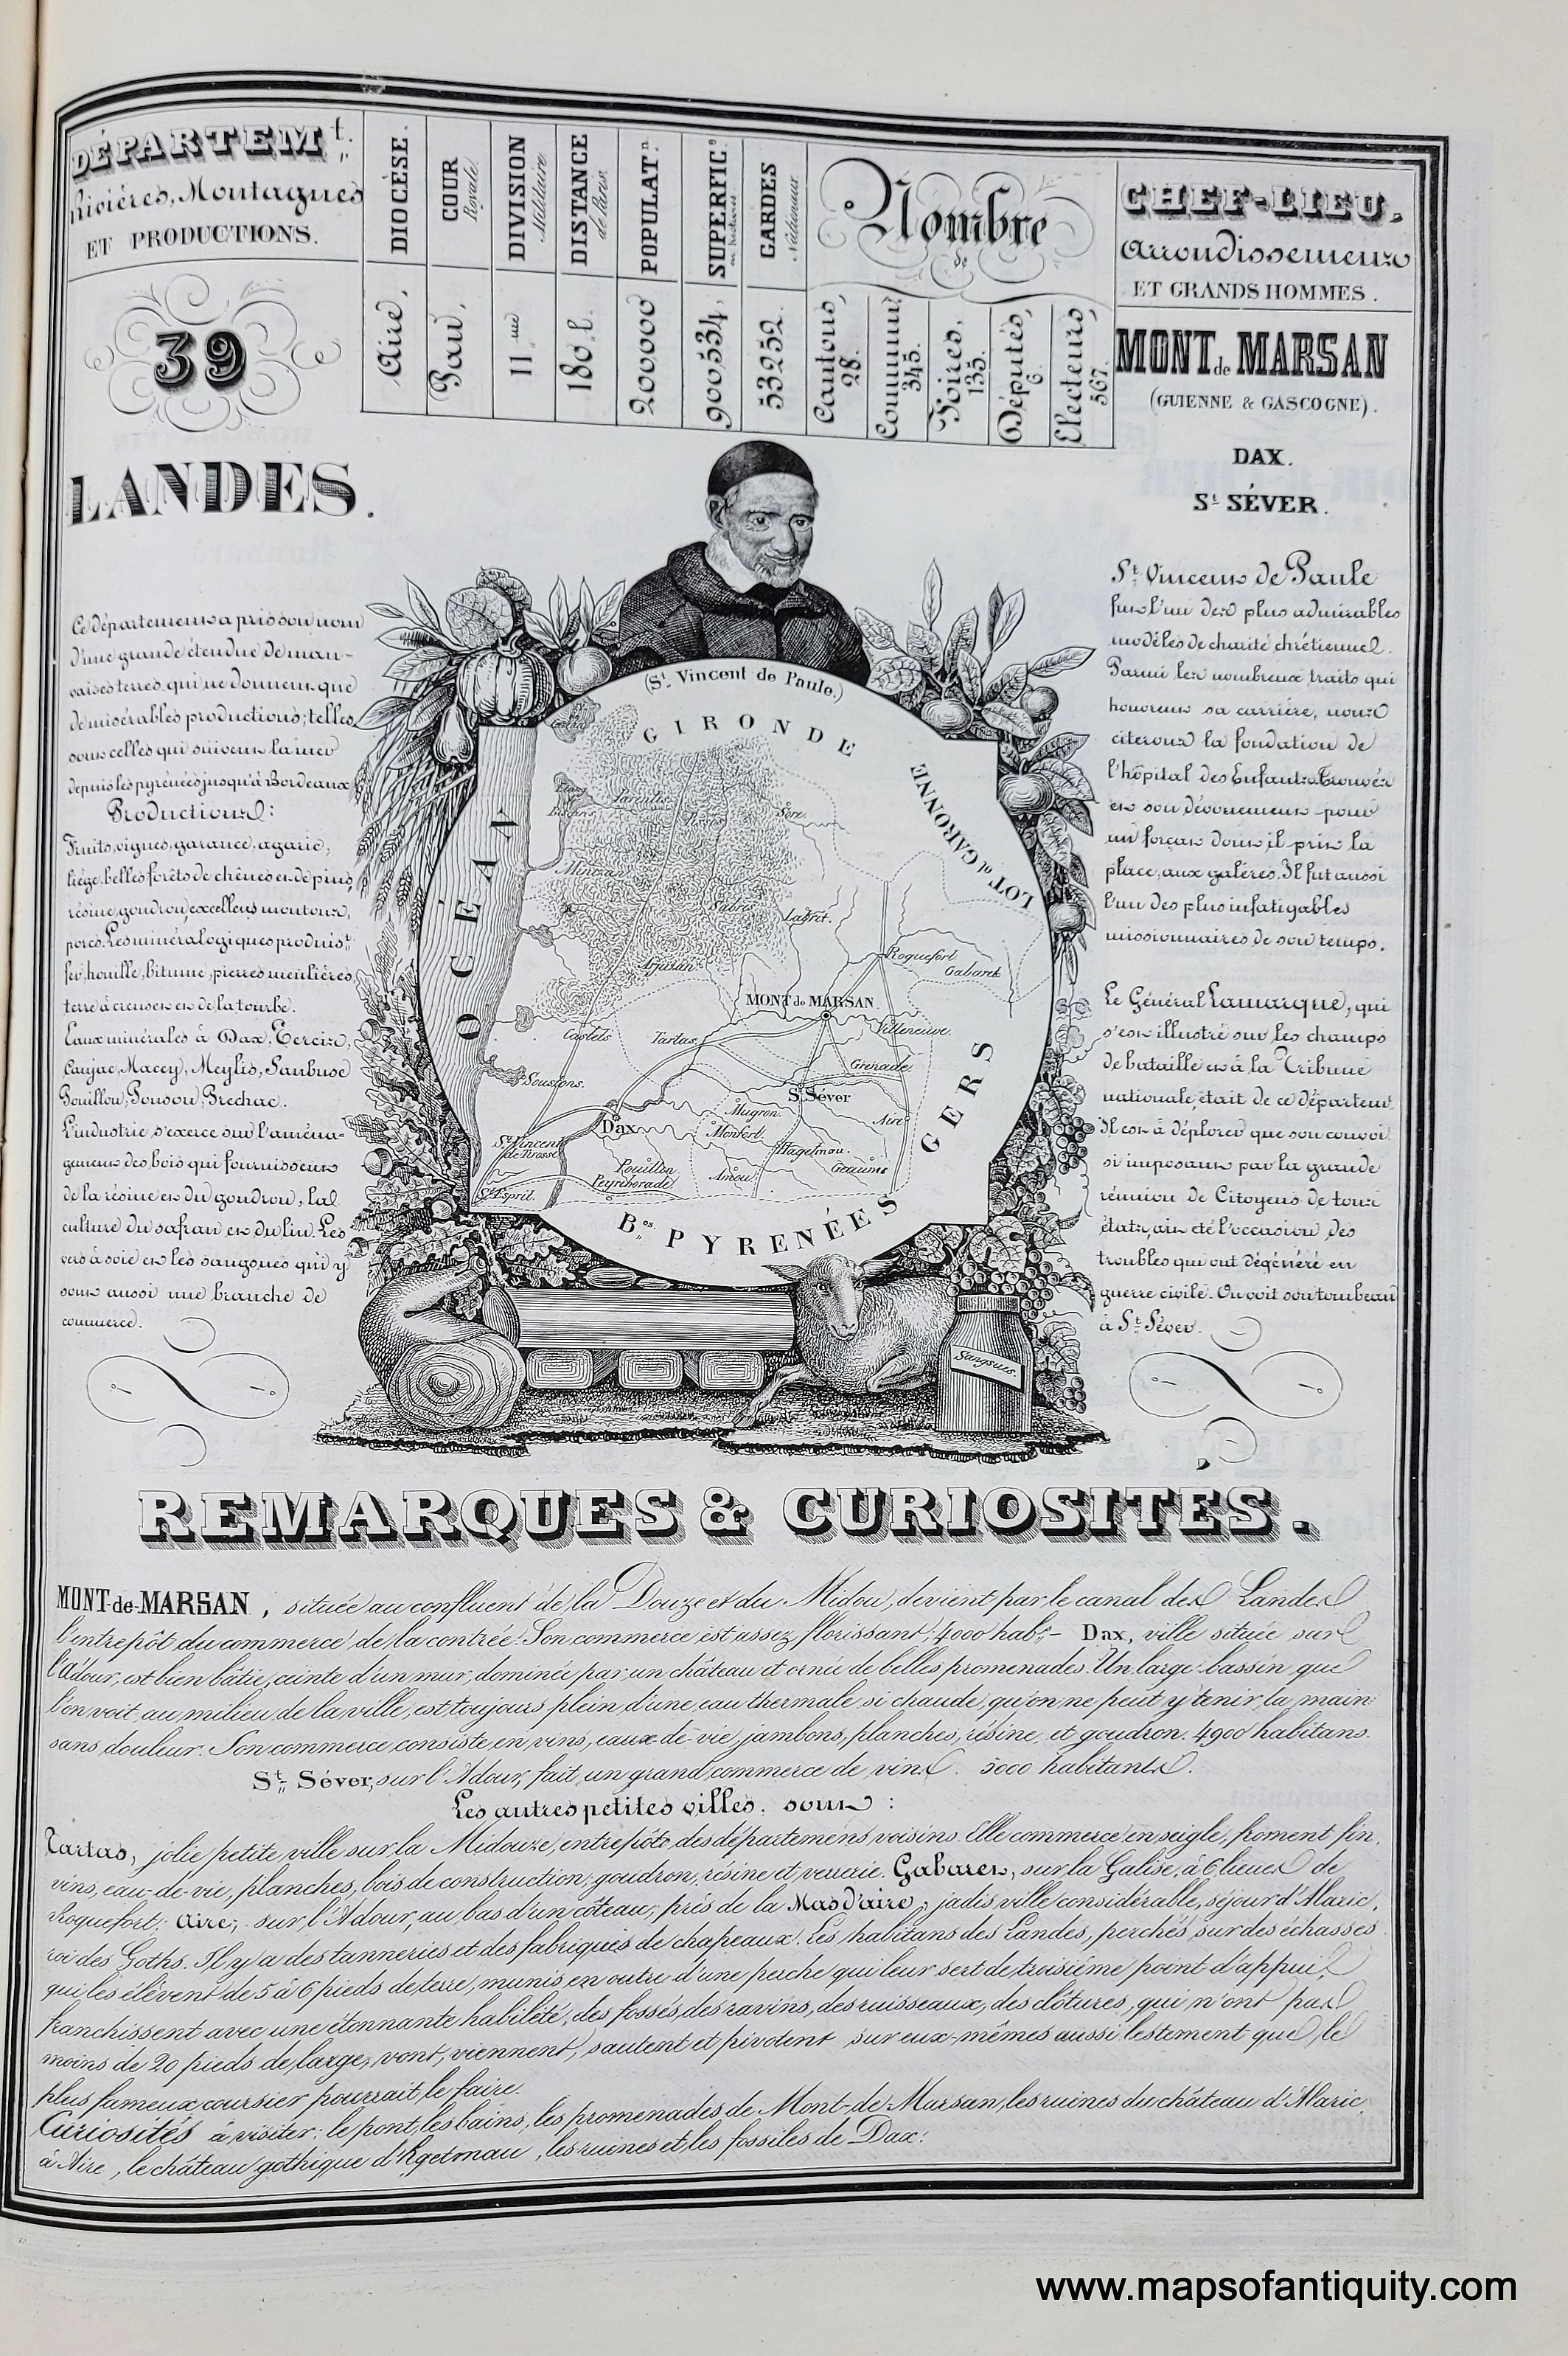 DÉPARTEM.t
Rivières, Montagnes
ET PRODUCTIONS.
DIOCÈSE.
COUR Royale.
DIVISION Militaire
DISTANCE de Paris.
POPULAT.n
SUPERFIC.e en hectares
GARDES Nationaux.
Nombre
de
CHEF-LIEU.
Arrondissemens
ET GRANDS HOMMES.
39
Aire,
Pau,
11.me
180.l.
200000
900534,
53252.
Cantons, 28.
Communes 345.
Foires, 135.
Députés, 6.
Electeurs, 567.
MONT de MARSAN
(GUIENNE & GASCOGNE).
DAX.
St. SÉVER.
LANDES.
Ce département a pris son nom
d'une grande étendue de mau-
vaises terres qui ne donnent que
de misérables productions; telles
sont celles qui suivent la mer
depuis les pyrénées jusqu'à Bordeaux
Productions:
Fruits, vignes, garance, agaric,
liége, belles forêts de chênes et de pins
résine, goudron, excellens moutons,
porcs. Les minéralogiques produis.t
fer, houille, bitume, pierres meulières
terre à creuset et de la tourbe.
Eaux minérales à Dax, Tercis,
Caujac, Macey, Meylis, Saubuse
Pouillon, Ponson, Brechac.
L'industrie s'exerce sur l'aména-
gement des bois qui fournissent
de la résine et du goudron, la
culture du safran et du lin. Les
vers à soie et les sangsues qui y
sont aussi une branche de
commerce.
St. Vincent de Paule
fut l'un des plus admirables
modèles de charité chrétienne.
Parmi les nombreux traits qui
honorent sa carrière, nous
citerons la fondation de
l'hôpital des Enfants Trouvés
et son dévouement pour
un forçat dont il prit la
place, aux galères. Il fut aussi
l'un des plus infatigables
missionnaires de son temps.
Le Général Lamarque, qui
s'est illustré sur les champs
de bataille et à la Tribune
nationale, était de ce départem.t
Il est à déplorer que son convoi
si imposant par la grande
réunion de Citoyens de tous
états, ait été l'occasion des
troubles qui ont dégénéré en
guerre civile. On voit son tombeau
à St. Séver.
(St. Vincent de Paule.)
GIRONDE
LOT et GARONNE
OCÉAN
GERS
Bses. PYRENÉES
Sore.
Mimizan
Sabres
Labrit.
Roquefort
Gabaret
Arjusan.
MONT de MARSAN
Castets
Tartas.
Villeneuve.
Grenade
Soustons.
St. Séver
Mugron.
Aire
Dax
Monfort.
St. Vincent
de Tirosse
Hagetmau.
Pouillon
Geaune
Peyrehorade
Amou.
St. Esprit.
Sangsues.
REMARQUES & CURIOSITÉS.
MONT-de-MARSAN, située au confluent de la Douze et du Midou, devient par le canal des Landes
l'entrepôt du commerce de la contrée. Son commerce est assez florissant, 4000 hab.s – Dax, ville située sur
l'Adour, est bien bâtie, ceinte d'un mur, dominée par un château et ornée de belles promenades. Un large bassin que
l'on voit au milieu de la ville, est toujours plein d'une eau thermale si chaude, qu'on ne peut y tenir la main
sans douleur. Son commerce consiste en vins, eaux-de-vie, jambons, planches, résine et goudron. 4900 habitans.
St. Séver, sur l'Adour, fait un grand commerce de vins. 5000 habitants.
Les autres petites villes sont :
Tartas, jolie petite ville sur la Midouze, entrepôts des départemens voisins. Elle commerce en seigle, froment fin,
vins, eau-de-vie, planches, bois de construction, goudron, résine et verrerie. Gabaret, sur la Galise, à 6 lieues de
Roquefort. Aire, sur l'Adour, au bas d'un côteau, près de la Mas d'aire, jadis ville considérable, séjour d'Alaric,
roi des Goths. Il y a des tanneries et des fabriques de chapeaux. Les habitans des Landes, perchés sur des échasses
qui les élèvent de 5 à 6 pieds de terre, munis en outre d'une perche qui leur sert de troisième point d'appui,
franchissent avec une étonnante habileté, des fossés, des ravins, des ruisseaux, des clôtures, qui n'ont pas
moins de 20 pieds de large, vont, viennent, sautent et pivotent sur eux-mêmes aussi lestement que le
plus fameux coursier pourrait le faire.
Curiosités à visiter: le pont, les bains, les promenades de Mont-de-Marsan, les ruines du château d'Alaric
à Aire, le château gothique d'Agetmau, les ruines et les fossiles de Dax.
www.mapsofantiquity.com